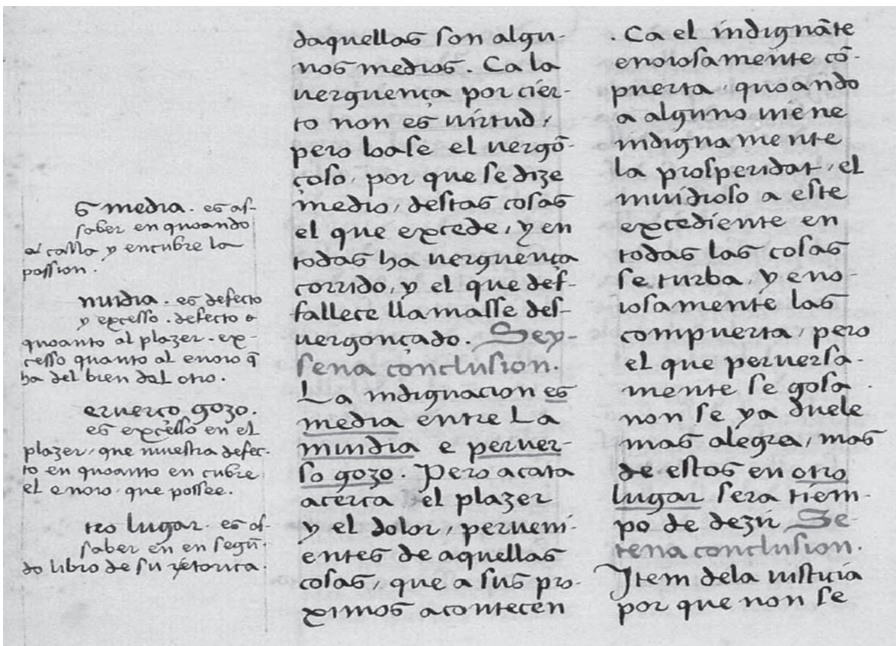 s media. es as-
saber en quoando
el calla y encubre la
passion.
nuidia. es defecto
y excesso. defecto e
quoanto al plazer. ex-
cesso quanto al enoio q̃
ha del bien del otro.
eruerço gozo.
es excesso en el
plazer, que muestra defec-
to en quoanto en cubre
el enoio que possee.
tro lugar. es as-
saber en en segũ-
do libro de su retorica.
daquellas son algu-
nos medios. Ca la
uerguença por cier-
to non es uirtud,
pero loase el uergõ-
çoso, por que se dize
medio, destas cosas
el que excede, y en
todas ha uerguença
corrido, y el que def-
fallece llamasse des-
uergonçado. Sey-
sena conclusion.
La indignacion es
media entre La
inuidia e peruer-
so gozo. Pero acata
acerca el plazer
y el dolor, perueni-
entes de aquellas
cosas, que a sus pro-
ximos acontecen
. Ca el indignãte
enoiosamente cõ-
puerta, quoando
a alguno uiene
indignamente
la prosperidat, el
inuidioso a este
excediente en
todas las cosas
se turba, y eno-
iosamente las
compuerta, pero
el que peruersa-
mente se gosa
non se ya duele
mas alegra, mas
de estos en otro
lugar sera tiem-
po de dezir Se-
tena conclusion.
Item dela iusticia
por que non se